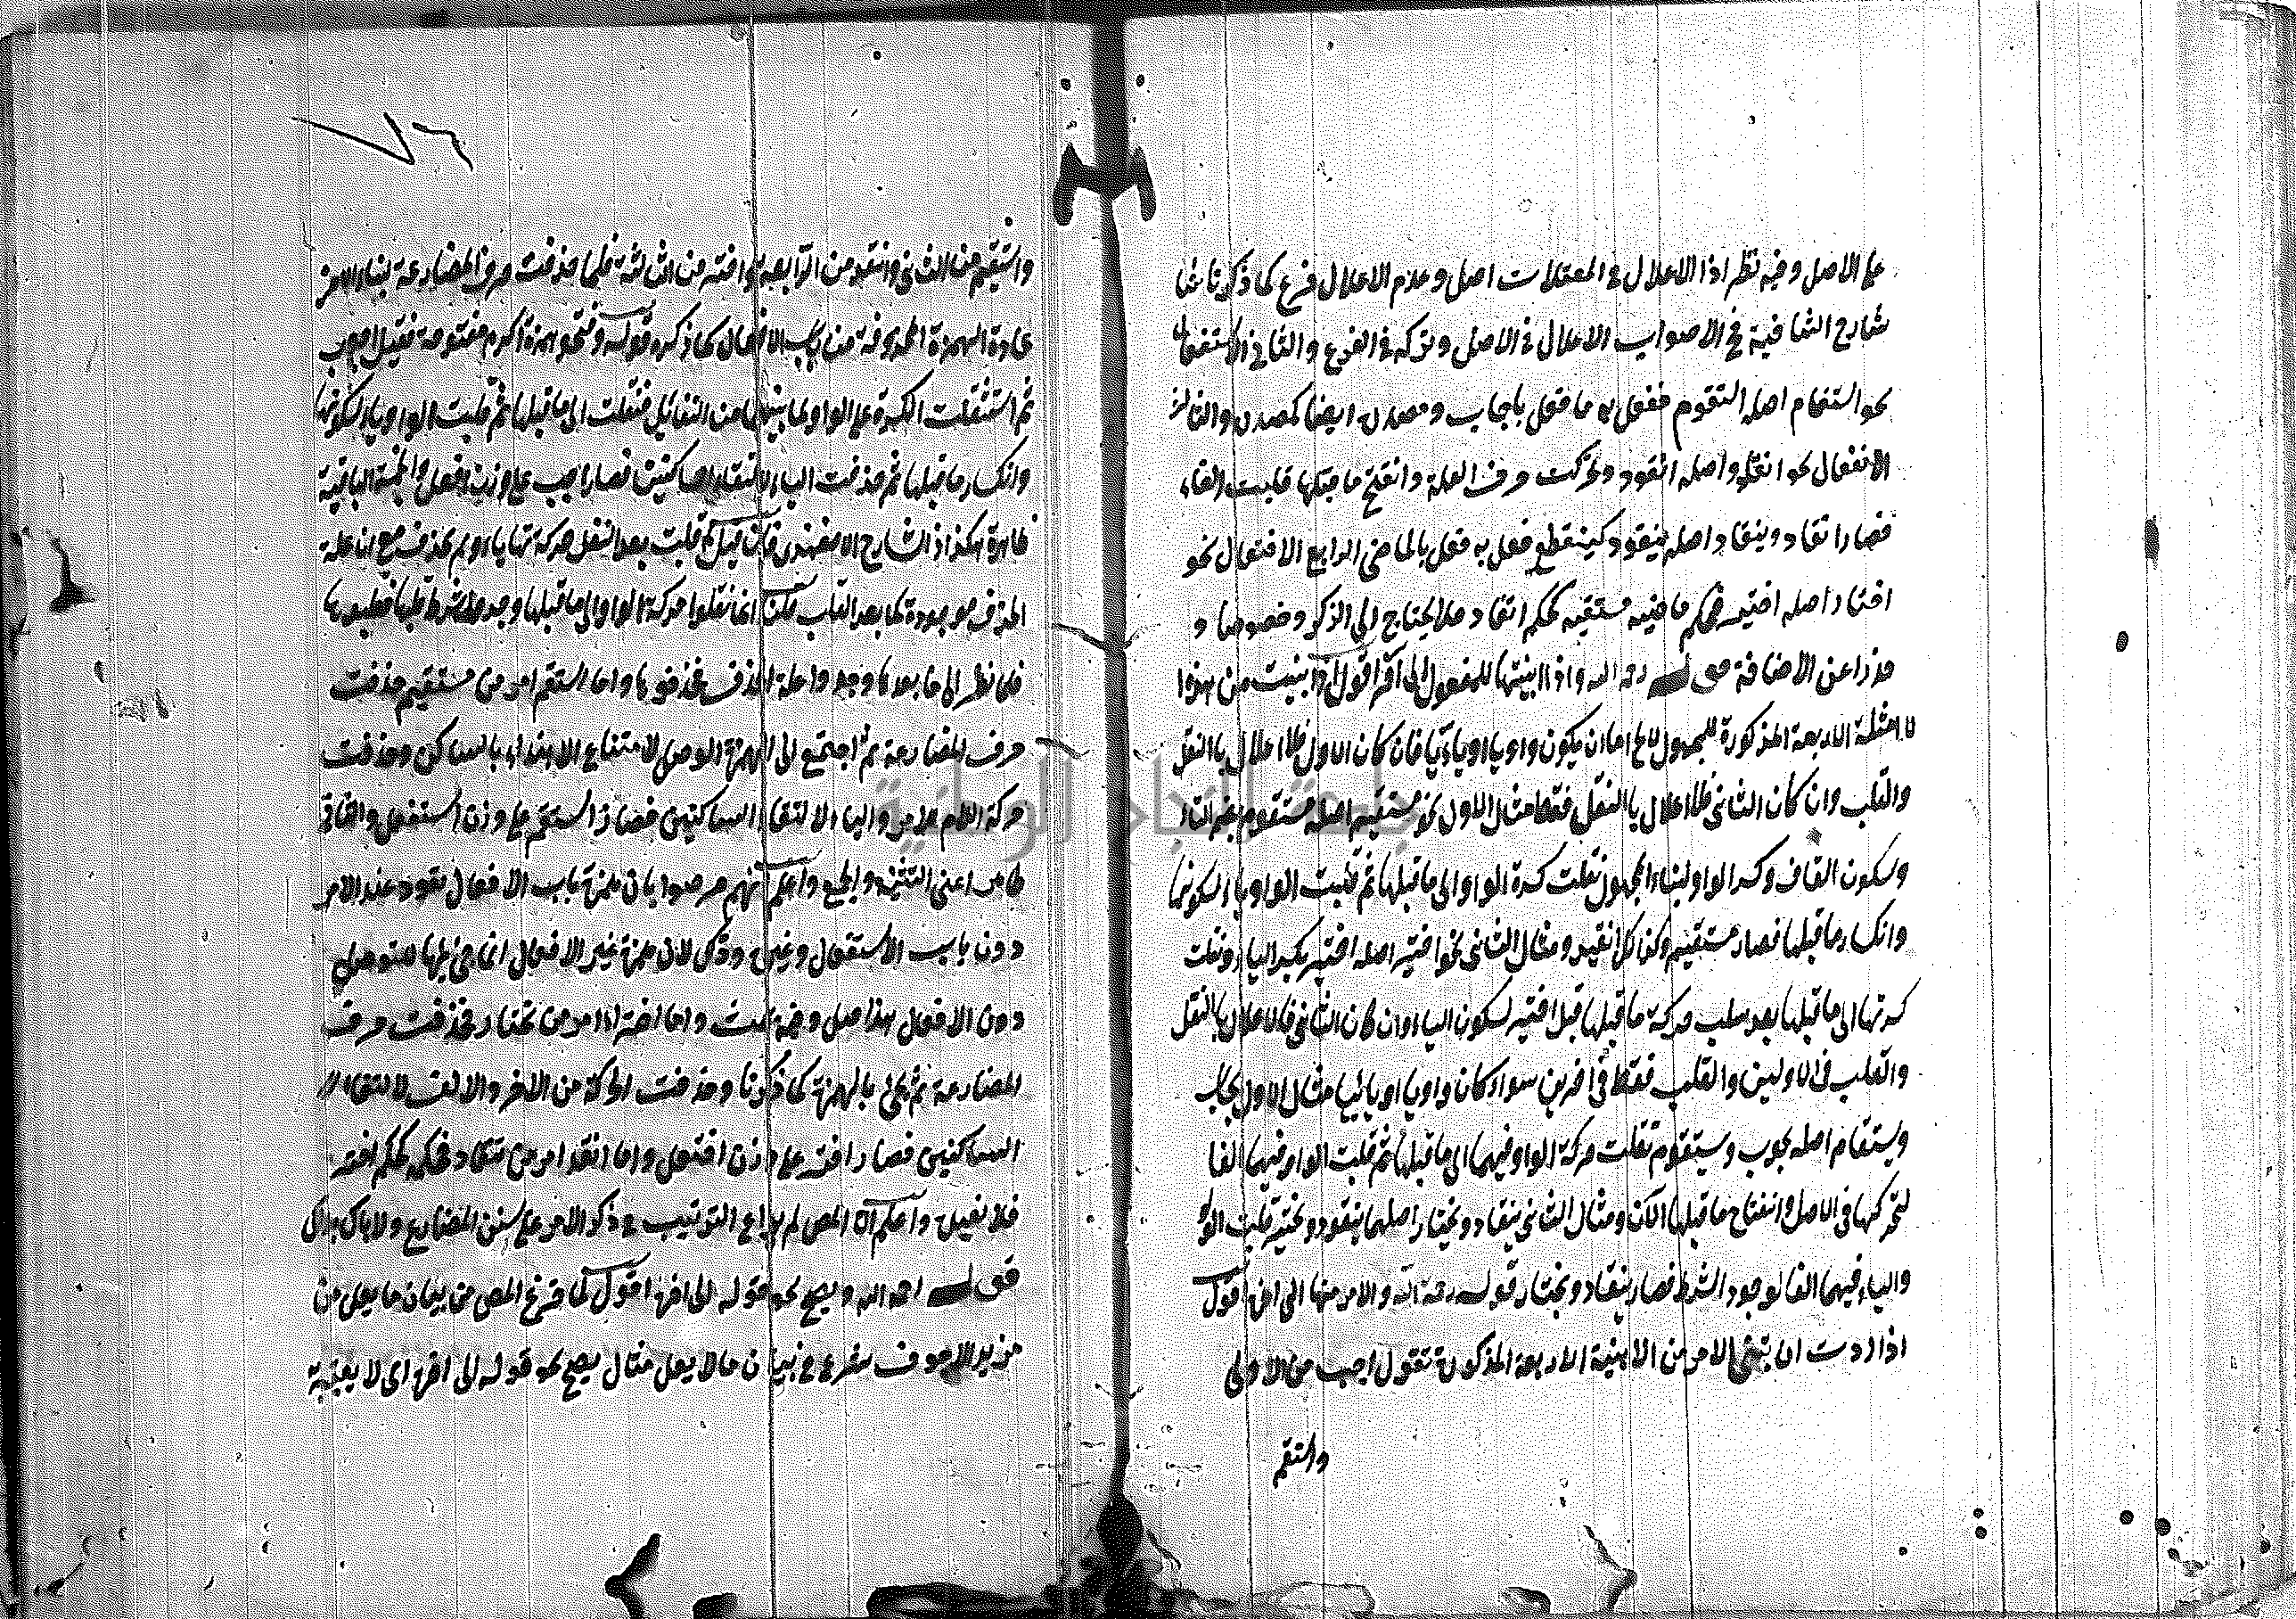 على الاصل وفيه نظر اذا الاعلال في المعتلات اصل وعدم الاعلال فرع كما ذكرنا
شارح الشافية في الاصواب الاعلال في الاصل وتركه في الفرع والثاني الاستفعال
نحو استقام اصله استقوم ففعل به ما فعل باجاب ومصدره ايضا كمصدره والثالث
الانفعال نحو انقاد واصله انقود وتحركت حرف العلة وانفتح ما قبلها قلبت الفاء
فصار انقاد وينقاد اصله ينقود كينقطع فعل به فعل بالماضي الرابع الافتعال نحو
اختار اصله اختير فحكم ما فيه مستقيه كحكم انقاد فلا يحتاج الى الذكر وخصوصا و
حذرا عن الاضافة قوله رحمه الله واذا بنيتها للمفعول الى آخره اقول اذا بنيت من هذه
لامثلة الاربعة المذكورة للمجهول اما ان يكون واويا او يائيا فان كان الاول فالاعلال بالنقل
والقلب وان كان الثاني فالاعلال بالنقل فقط مثال الاول نحو استقيم اصله استقوم بضم التاء
وسكون القاف وكسر الواو لبناء المجهول نقلت كسرة الواو الى ما قبلها ثم قلبت الواو ياء لسكونها
وانكسار ما قبلها فصار استقيم وكذا كل انقيد ومثال الثاني نحو اختير اصله اختير بكسر الياء ونقلت
كسرتها الى ما قبلها بعد سلب حركة ما قبلها قبل اختير لسكون الياء وان كان الثاني فالاعلال بالنقل
والقلب في الاولين والقلب فقط في اخرين سواء كان واويا او يائيا مثال الاول يجاب
ويستقام اصله يجوب ويستقوم نقلت حركة الواو فيهما الى ما قبلها ثم قلبت الواو فيهما الفا
لتحركها في الاصل وانفتاح ما قبلها الآن ومثال الثاني ينقاد ويختار اصلهما ينقود ويختير قلبت الواو
والياء فيهما الفا لوجود الشرط فصار ينقاد ويختار قوله رحمه الله والامر منها الى اخره اقول
اذا اردت ان تبني الامر من الابنية الاربعة المذكورة تقول اجب من الاولى
واستقم
٧٦
واستقم من الثاني وانقد من الرابعة واختر من الثالثة فلما حذفت حرف المضارعة لبناء الامر
عادة الهمزة المحذوفة من باب الافعال كما ذكره قوله وفتحو همزة اكرم مفتوحة فقيل اجوب
ثم استثقلت الكسرة على الواو لما بينهما من التقابل فنقلت الى ما قبلها ثم قلبت الواو ياء لسكونها
وانكسار ما قبلها ثم حذفت الياء لالتقاء الساكنين فصار اجب على وزن افعل والخمسة الباقية
ظاهرة هكذا ذ الشارح فان قيل لم قلبت بعد النقل حركتها ياء ولم يحذف مع ان علة
الحذف موجودة كما بعد القلب قلنا انما نقلوا حركة الواو الى ما قبلها وجد شرط قلبها فقلبوها
فلما نظر الى ما بعدها وجد واعلة الحذف فحذفوها واما استقم امر من مستقيم حذفت
حرف المضارعة ثم اجتمع الى الهمزة الوصل لامتناع الابتداء بالساكن وحذفت
حركة اللام للامر والياء لالتقاء الساكنين فصار استقم على وزن استفعل والباقي
ظاهر اعنى التثنية والجمع واعلم انهم صرحوا بان همزة باب الافعال تعود عند الامر
دون باب الاستفعال وغيره وذلك لان همزة غير الافعال انما جئ بها للتوصل
دون الافعال هذا اصل وضعت واما اختر امر من تختار فحذفت حرف
المضارعة ثم جئ بالهمزة كما ذكرنا وحذفت الحركة من الاخر والالف لالتقاء
الساكنين فصار اختر على وزن افتعل واما انقد امر من تنقاد فحكمه كحكم اختر
فلا نعيده واعلم ان المص لم يراع الترتيب في ذكر الامر على سنن المضارع ولا باس بذلك
قوله رحمه الله ويصح نحو قوله الى اخره اقول لما فرغ المص من بيان ما يعل من
مزيد الاجوف شرع في بيان ما لا يعل مثال يصح نحو قوله الى اخره اى لا يعل